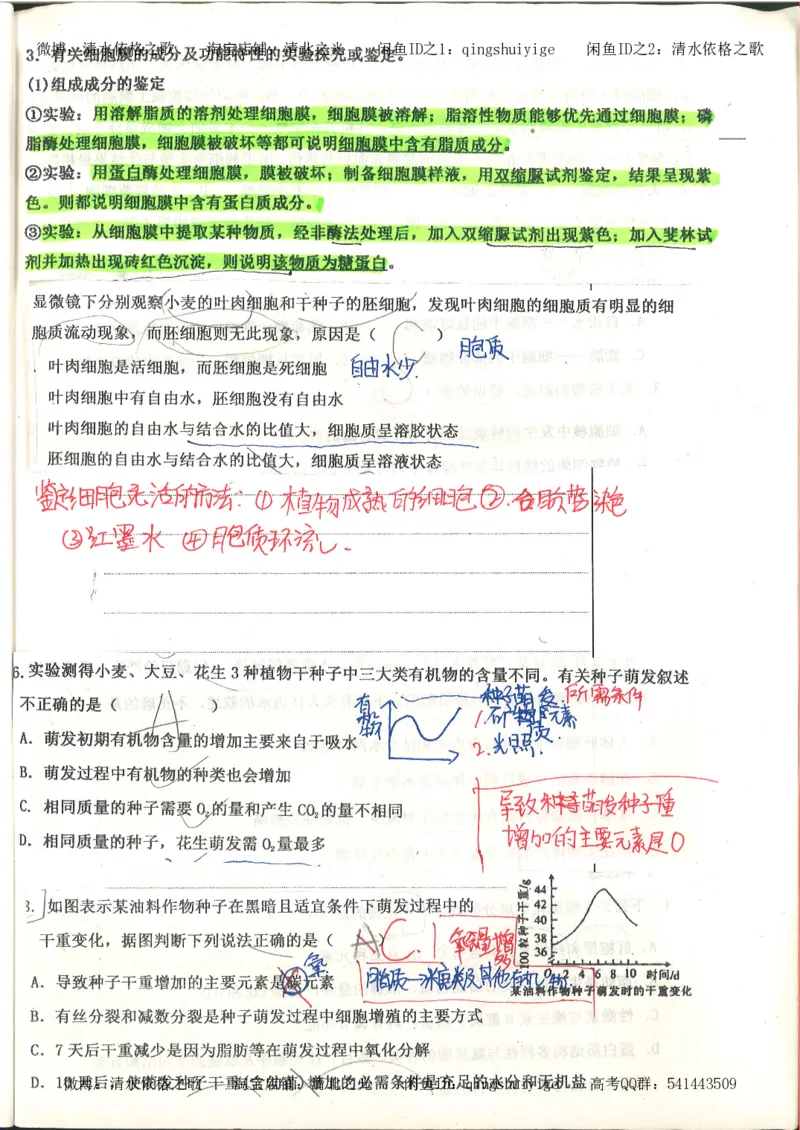 微博：清水依格之歌　淘宝店铺：清北之光　闲鱼ID之1：qingshuiyige　闲鱼ID之2：清水依格之歌
3. 有关细胞膜的成分及功能特性的实验探究或鉴定。
(1)组成成分的鉴定
①实验：用溶解脂质的溶剂处理细胞膜，细胞膜被溶解；脂溶性物质能够优先通过细胞膜；磷
脂酶处理细胞膜，细胞膜被破坏等都可说明细胞膜中含有脂质成分。
②实验：用蛋白酶处理细胞膜，膜被破坏；制备细胞膜样液，用双缩脲试剂鉴定，结果呈现紫
色。则都说明细胞膜中含有蛋白质成分。
③实验：从细胞膜中提取某种物质，经非酶法处理后，加入双缩脲试剂出现紫色；加入斐林试
剂并加热出现砖红色沉淀，则说明该物质为糖蛋白。
显微镜下分别观察小麦的叶肉细胞和干种子的胚细胞，发现叶肉细胞的细胞质有明显的细
胞质流动现象，而胚细胞则无此现象，原因是（ C ）
胞质
叶肉细胞是活细胞，而胚细胞是死细胞 自由水少.
叶肉细胞中有自由水，胚细胞没有自由水
叶肉细胞的自由水与结合水的比值大，细胞质呈溶胶状态
胚细胞的自由水与结合水的比值大，细胞质呈溶液状态
鉴定细胞死活的方法：① 植物成熟的细胞 ②.台盼蓝染色
③红墨水 ④胞质环流.
6.实验测得小麦、大豆、花生3种植物干种子中三大类有机物的含量不同。有关种子萌发叙述
不正确的是（ A ）
种子萌发所需条件
1.矿质元素
2.光照.
A．萌发初期有机物含量的增加主要来自于吸水
B．萌发过程中有机物的种类也会增加
C．相同质量的种子需要O₂的量和产生CO₂的量不相同
D．相同质量的种子，花生萌发需O₂量最多
导致种子萌发种子重
增加的主要元素是O
8. 如图表示某油料作物种子在黑暗且适宜条件下萌发过程中的
干重变化，据图判断下列说法正确的是（ A ）C.
氧
A．导致种子干重增加的主要元素是碳元素
B．有丝分裂和减数分裂是种子萌发过程中细胞增殖的主要方式
C．7天后干重减少是因为脂肪等在萌发过程中氧化分解
D．10天后，使萌发种子干重(含幼苗)增加的必需条件是充足的水分和无机盐
100粒种子干重/g
44
42
40
38
36
0 2 4 6 8 10 时间/d
某油料作物种子萌发时的干重变化
微博：清水依格之歌　淘宝店铺：清北之光　闲鱼ID：qingshuiyige　高考QQ群：541443509